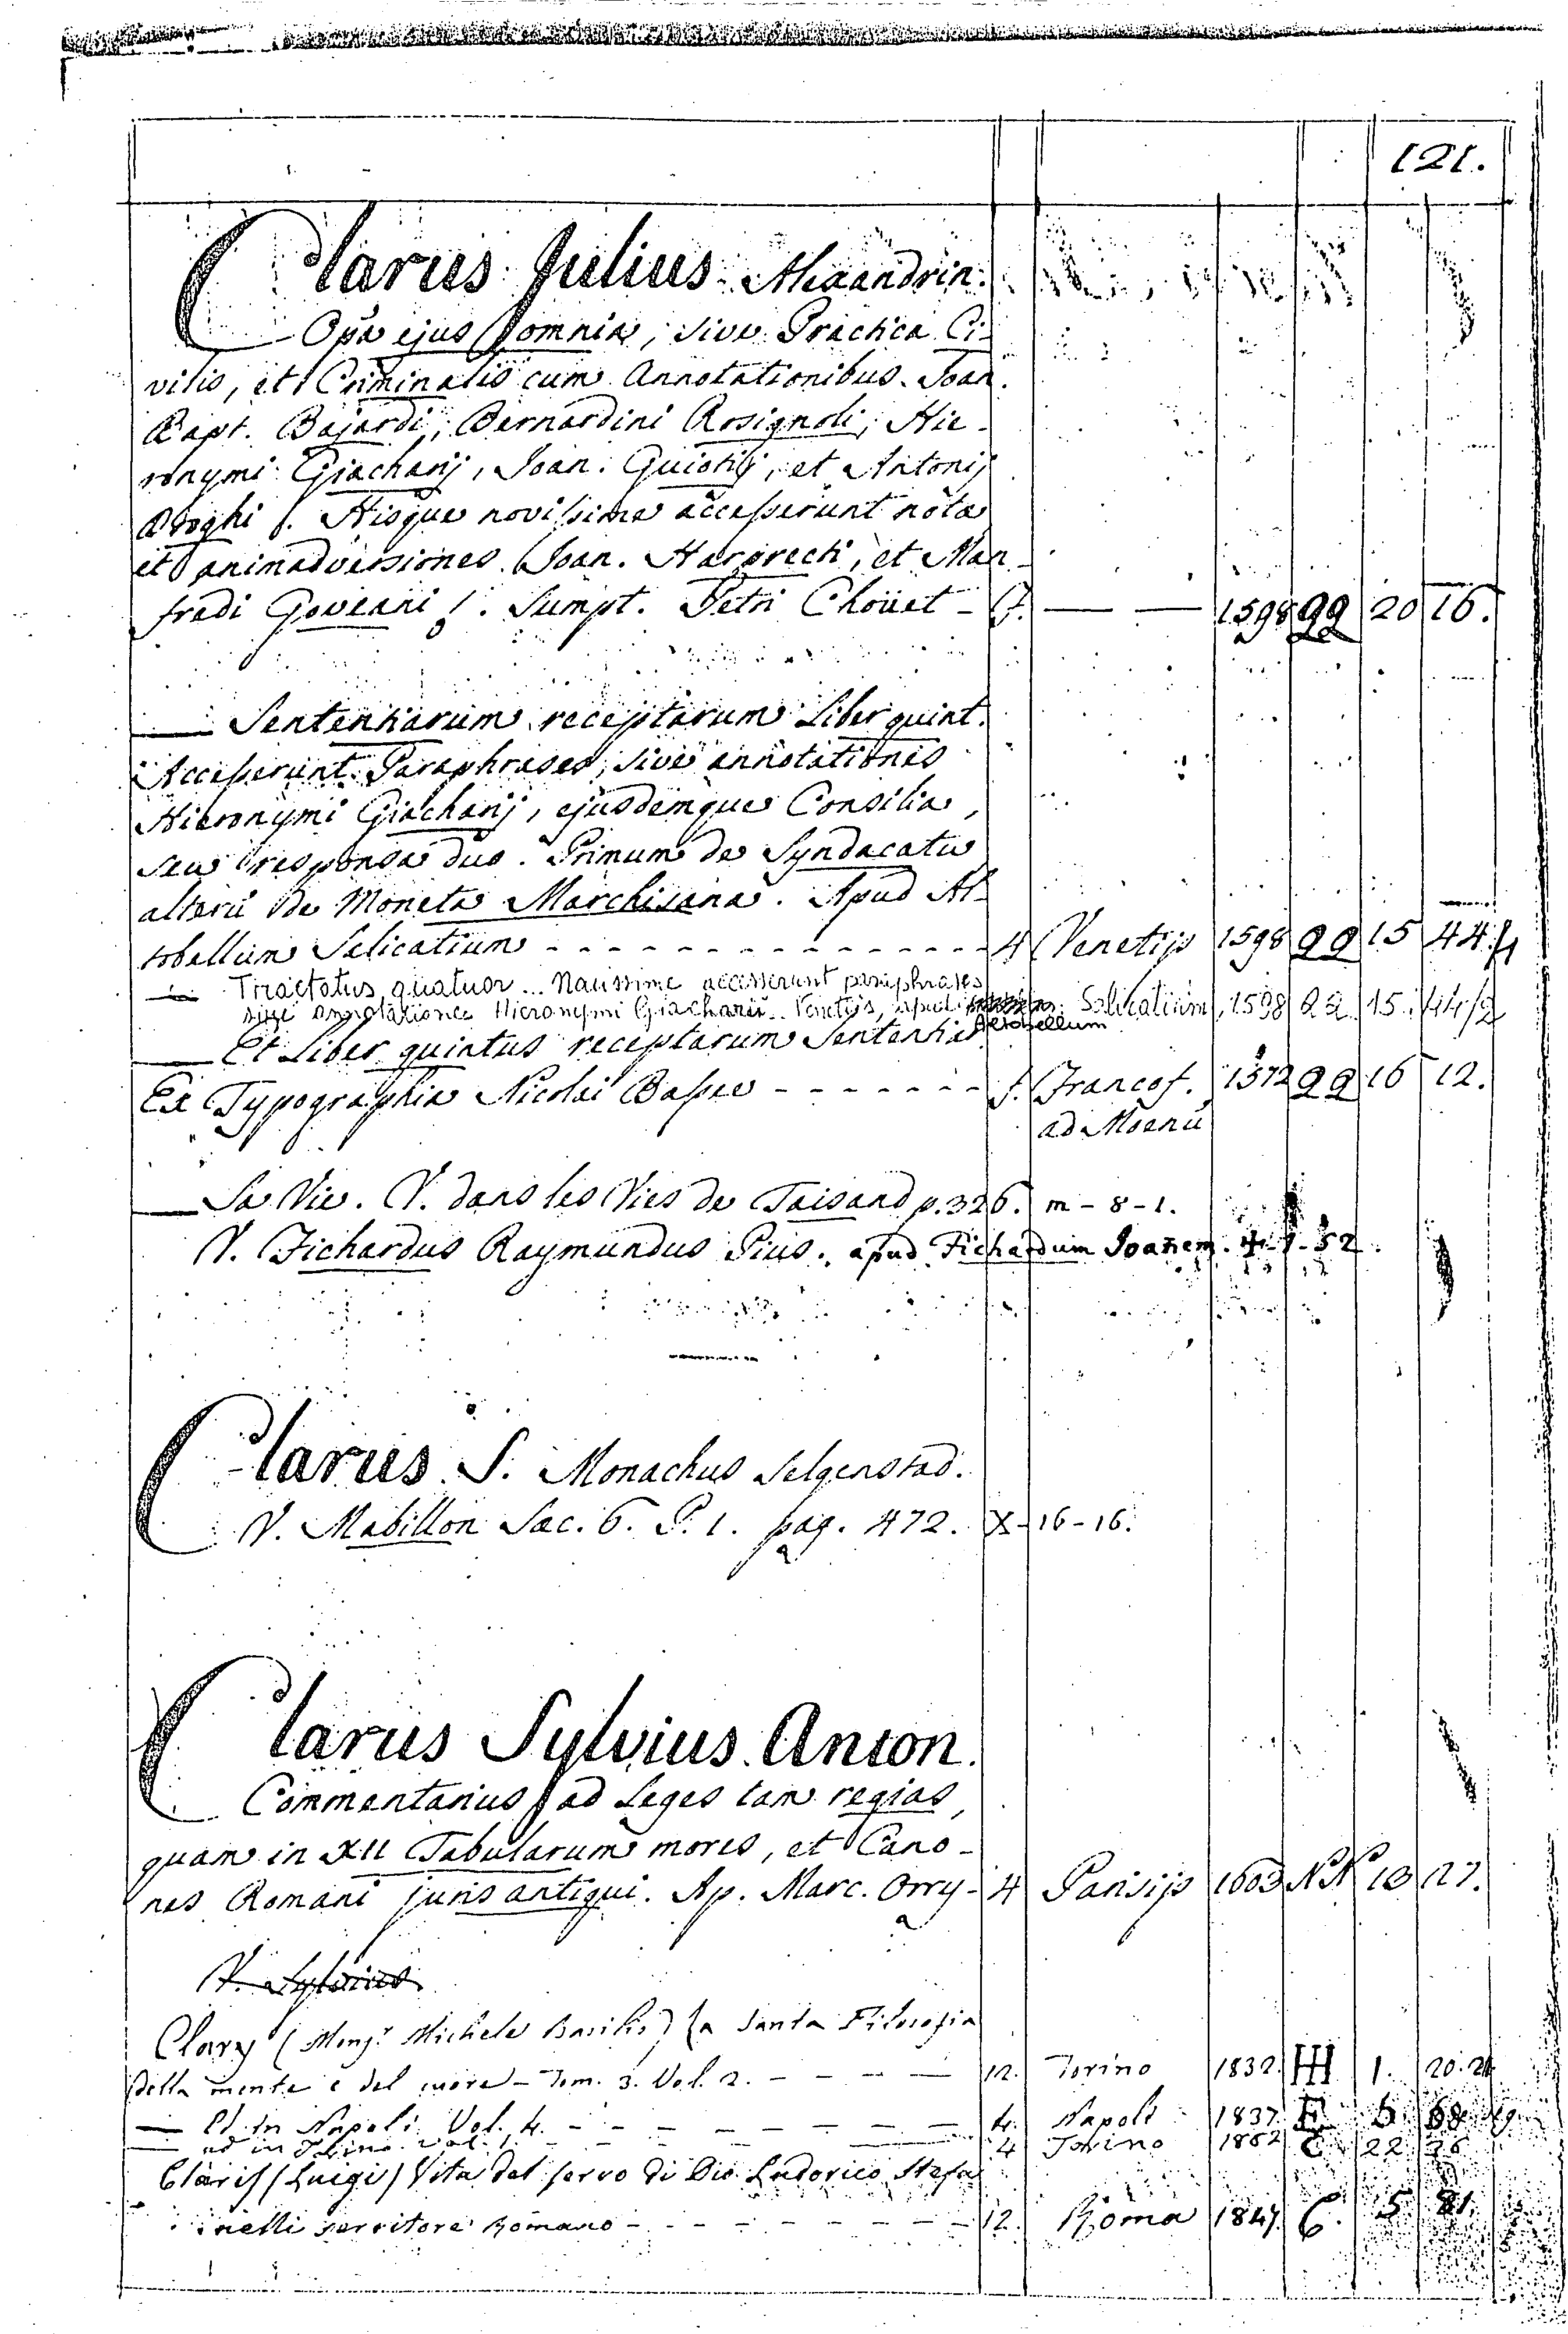 121.
Clarus Julius Alexandrin.
Opa ejus omnia, sive Practica Ci-
vilis, et Criminalis cum Annotationibus Joan.
Bapt. Bajardi, Bernardini Rosignoli, Hie-
ronymi Giachanj, Joan. Guiotij, et Antonij
Droghi f. Hisque novissime accesserunt notæ
et animadversiones Joan. Harprecti, et Man-
fredi Goveani f. Sumpt. Petri Choüet - f. — — 1598 QQ 20 16.
— Sententiarum receptarum Liber quint.
Accesserunt Paraphrases, sive annotationes
Hieronymi Giachanj, ejusdemque Consilia,
seu responsa duo. Primum de Syndacatu
alterū de Moneta Marchisana. Apud Al-
tobellum Salicatium - - - - - - - - - - - 4 Venetijs 1598 QQ 15 44.
— Tractatus quatuor... Nauissime accesserunt paraphrases
siue annotationes Hieronymi Giacharii. Venetijs, apud Altobellum Salicatium 1598 QQ 15 44/2
— Et Liber quintus receptarum Sententiar.
Ex Typographia Nicolai Bassæ - - - - - - - f. Francof. 1572 QQ 16 12.
ad Moenū
— Sa Vie. V. dans les Vies de Taisand p. 326. m - 8 - 1.
V. Fichardus Raymundus Pius. apud Fichardum Joañem. 1 - 52.
Clarus S. Monachus Selgenstad.
V. Mabillon Sæc. 6. P. 1. pag. 472. X - 16 - 16.
Clarus Sylvius Anton.
Commentarius ad Leges tam regias,
quam in XII Tabularum mores, et Cano-
nes Romani juris antiqui. Ap. Marc. Orry - 4 Parisijs 1603 NN 13 27.
V. Sylvius
Clary (Monsr. Michele Basilio) La Santa Filosofia
della mente e del cuore - Tom. 3. Vol. 2. - - - - 12. Torino 1832. HH 1. 20.21
— Et in Napoli Vol. 4. - - - - - - - 4. Napoli 1837.
— ed in Torino. Vol. 1 - - - - 4 Torino 1862 C 22 26
Claris (Luigi) Vita del servo di Dio Ludovico Stefa
nelli servitore Romano - - - - - - - - - 12. Roma 1847. C. 5 81.